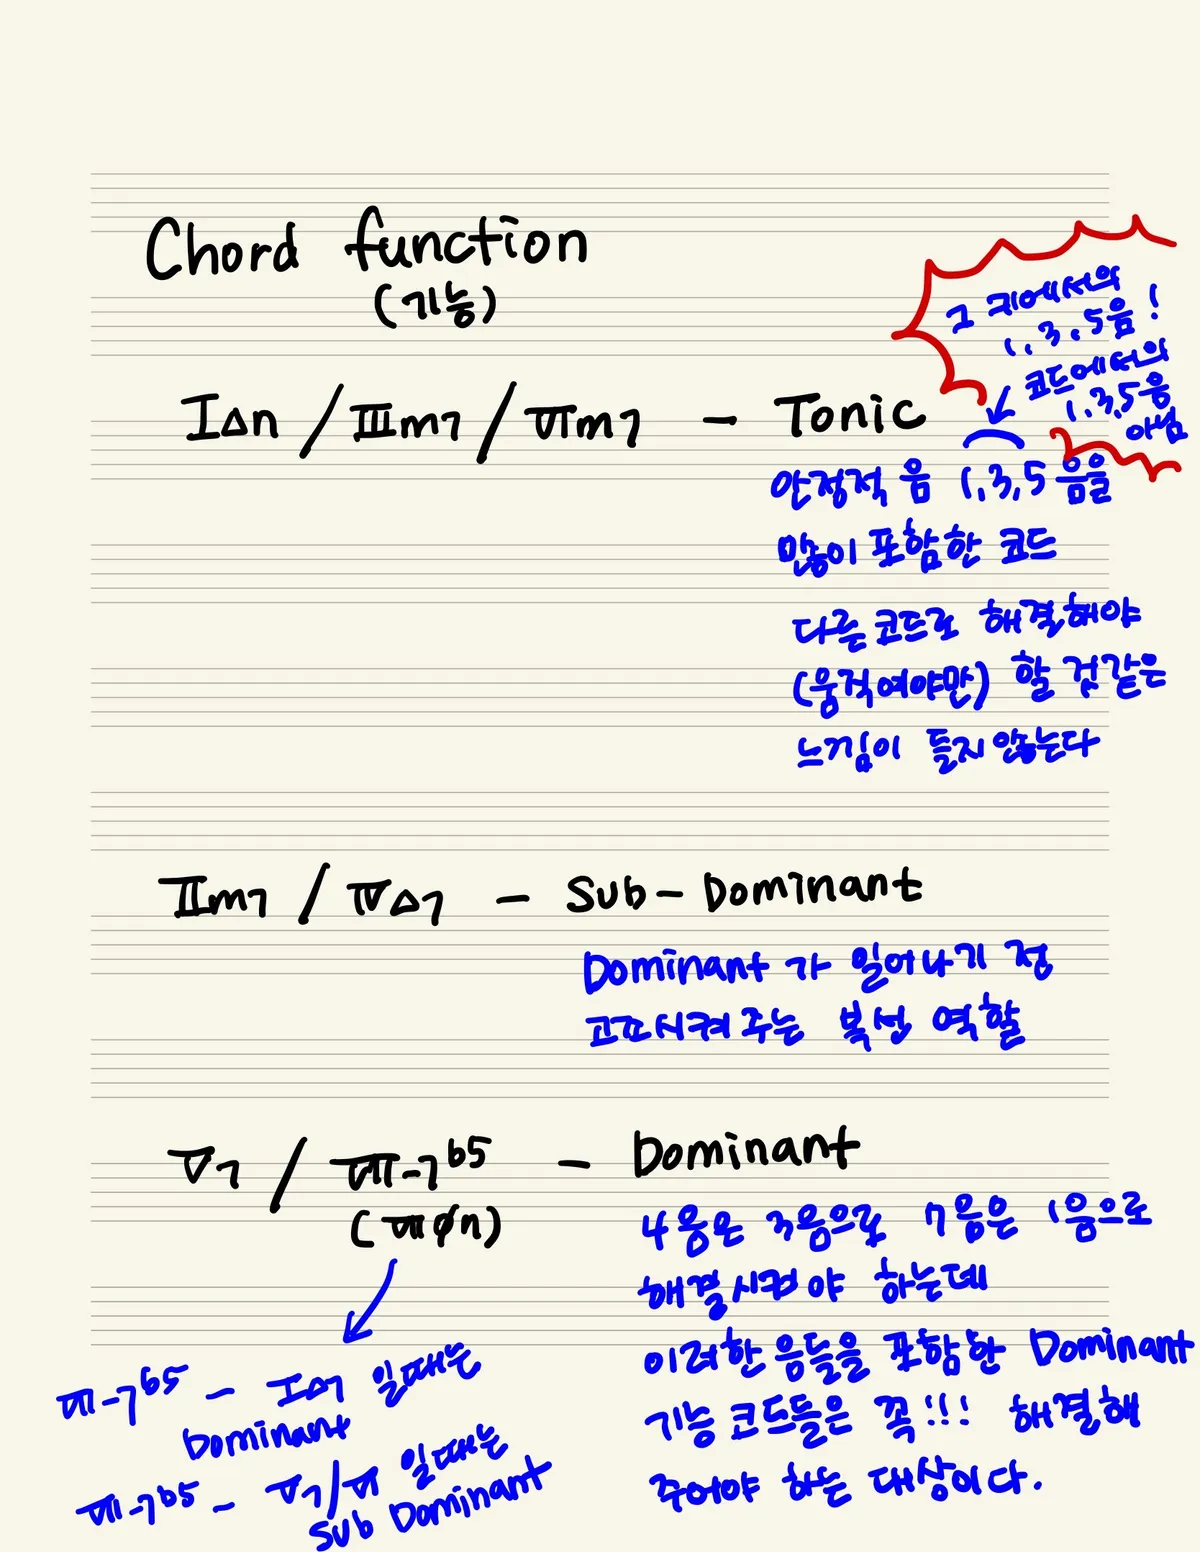 Chord function
(기능)
그 키에서의
1, 3, 5음!
코드에서의
1,3,5음
아님
I△7 / IIIm7 / VIm7 - Tonic
안정적 음 1,3,5 음을
많이 포함한 코드
다른 코드로 해결해야
(움직여야만) 할 것 같은
느낌이 들지 않는다
IIm7 / IV△7 - Sub-Dominant
Dominant가 일어나기 전
고조시켜 주는 복선 역할
V7 / VII-7b5 - Dominant
(VIIø7)
4음은 3음으로 7음은 1음으로
해결시켜야 하는데
이러한 음들을 포함한 Dominant
기능 코드들은 꼭!!! 해결해
주어야 하는 대상이다.
VII-7b5 - I△7 일때는
Dominant
VII-7b5 - V7/VI 일때는
Sub Dominant